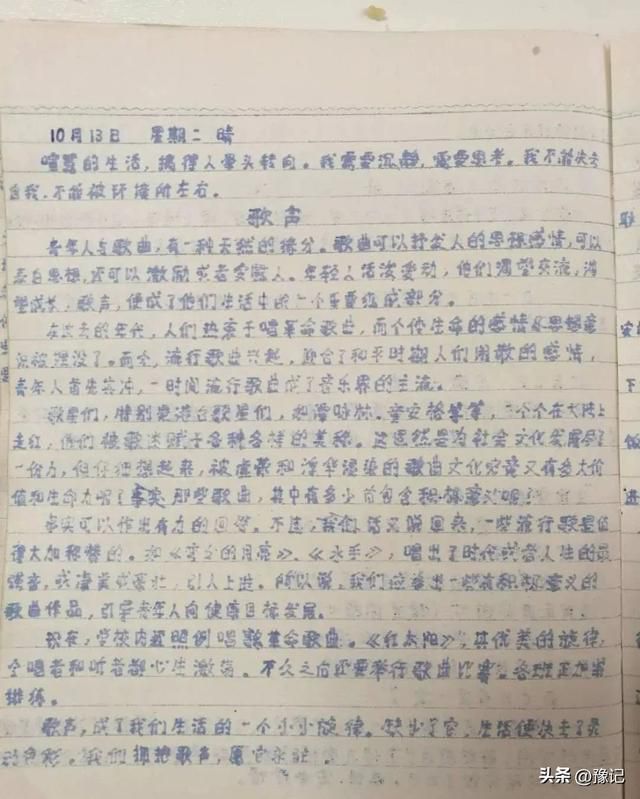 10月13日 星期二 晴
喧嚣的生活，搞得人晕头转向。我需要沉静，需要思考。我不能失去
自我，不能被环境所左右。
歌声
青年人与歌曲，有一种天然的缘分。歌曲可以抒发人的思想感情，可以
表白思想，还可以激励或者安慰人。年轻人活泼爱动，他们渴望交流，渴
望成长，歌声，便成了他们生活中的一个重要组成部分。
在过去的年代，人们热衷于唱革命歌曲，而个性生命的感情及思想意
识被埋没了。而今，流行歌曲兴起，融合了和平时期人们闲散的感情，
青年人首先其冲，一时间流行歌曲成了音乐界的主流。
歌星们，特别是港台歌星们，童安格等等，一个个在大陆上
走红，他们被歌迷赋予各种各样的美称。这固然是为社会文化发展尽了
一份力，但仔细想起来，被虚荣和浮华浸染的歌曲文化究竟又有多大价
值和生命力呢？事实 那些歌曲，其中有多少首包含积极意义呢？
事实可以作出有力的回答。不过，我们话又说回来，一些流行歌是值
得大加称赞的。如《弯弯的月亮》、《水手》，唱出了时代或者人生的最
强音，或凄美或豪壮，引人上进。所以说，我们应推出一些有积极意义的
歌曲作品，引导青年人向健康目标发展。
现在，学校内还照例唱革命歌曲。《红太阳》，其优美的旋律，
令唱者和听者都心生激荡。不久之后还要举行歌曲比赛，各班正加紧
排练。
歌声，成了我们生活的一个小小旋律。缺少了它，生活便失去了灵
动色彩。我们拥抱歌声，愿它永驻。
头条 @豫记